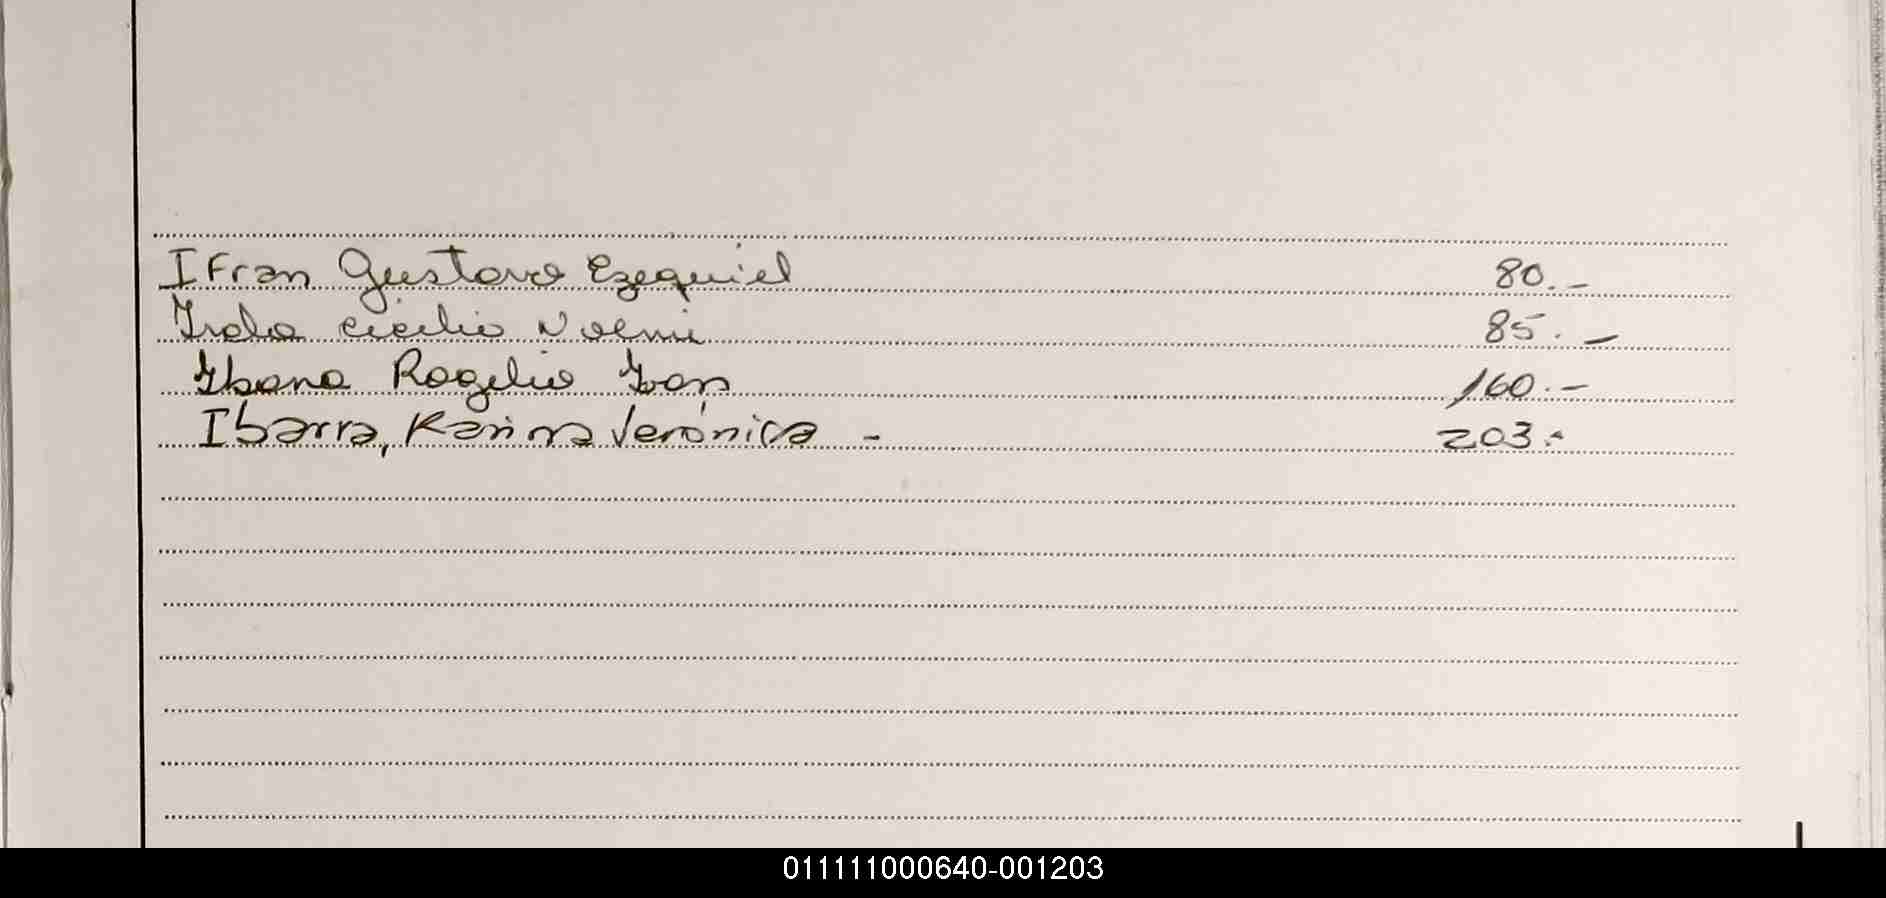 Ifran Gustavo Ezequiel 80.-
Cecilia Noemi 85.-
Rogelio Ivan 160.-
Ibarra, Karina Verónica - 203.-
011111000640-001203